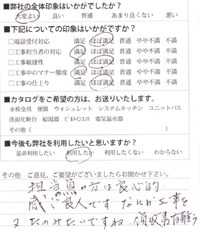 ■弊社の全体印象はいかがでしたか?
大変よい 良い 普通 あまり良くない 悪い
■下記についての印象はいかがですか?
□電話受付対応 満足 ほぼ満足 普通 やや不満 不満
□工事担当者の対応 満足 ほぼ満足 普通 やや不満 不満
□工事敏捷性 満足 ほぼ満足 普通 やや不満 不満
□工事中のマナー態度 満足 ほぼ満足 普通 やや不満 不満
□工事の仕上り 満足 ほぼ満足 普通 やや不満 不満
■カタログをご希望の方は、お送りいたします。
水栓金具 便器 ウォシュレット システムキッチン ユニットバス
洗面化粧台 給湯器 ビルトインコンロ 電気温水器
その他(
■今後も弊社を利用したいと思いますか?
是非利用したい 利用したい 利用したくない わからない
その他 ご意見、ご要望がございましたらお聞かせ下さい。
担当の方は良心的
感じ良い人です
又たのみたいですね